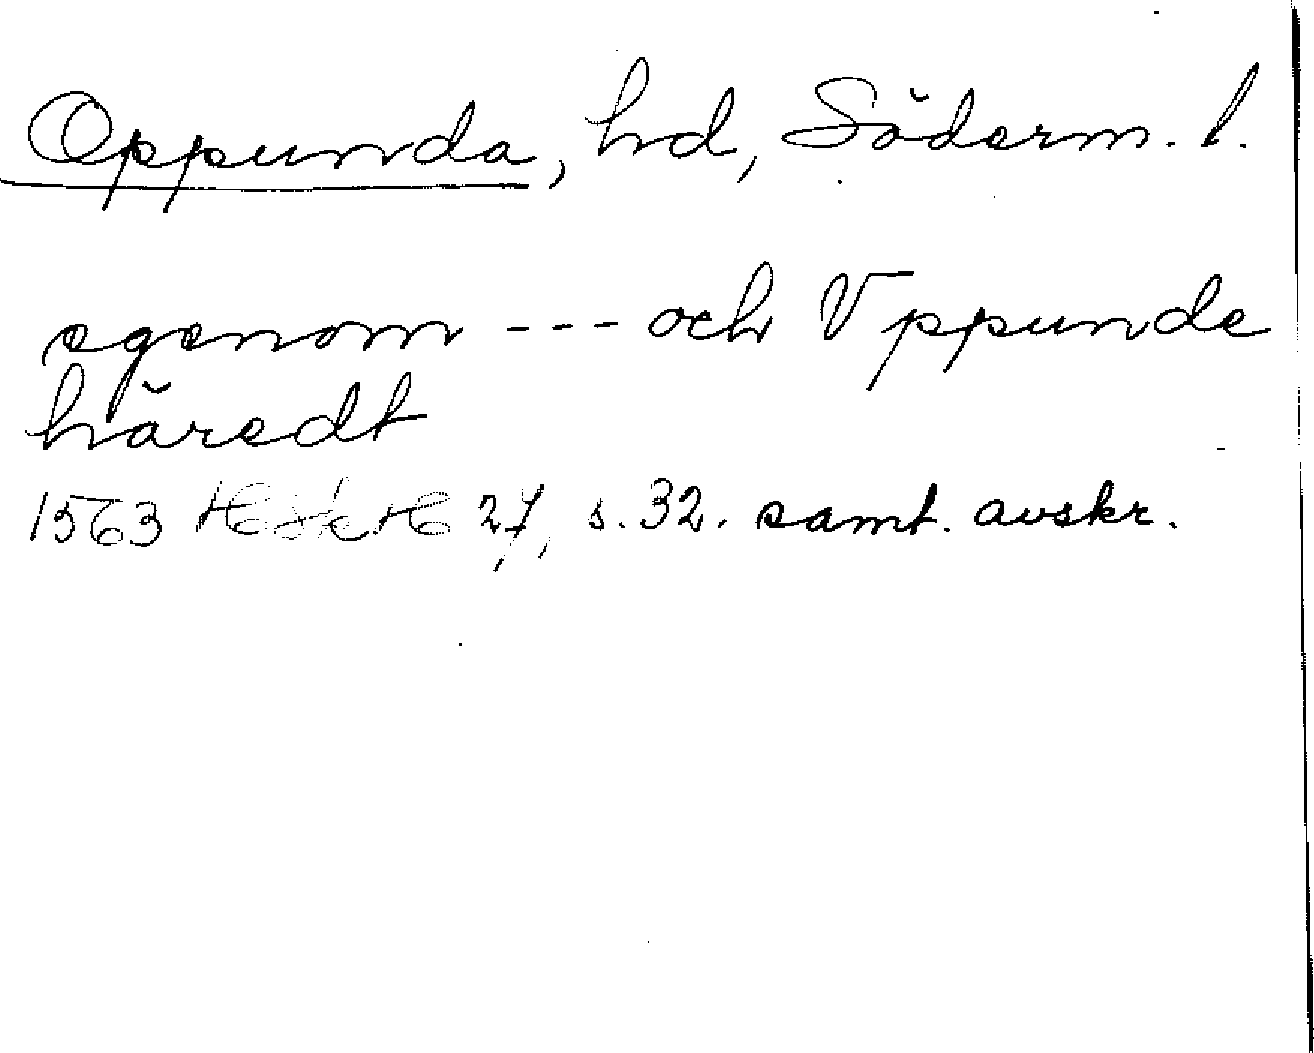 Oppunda, hd, Söderm. l.
egenom --- och Vppunde
häredt
1563 HSkH 27, s. 32. samt. avskr.